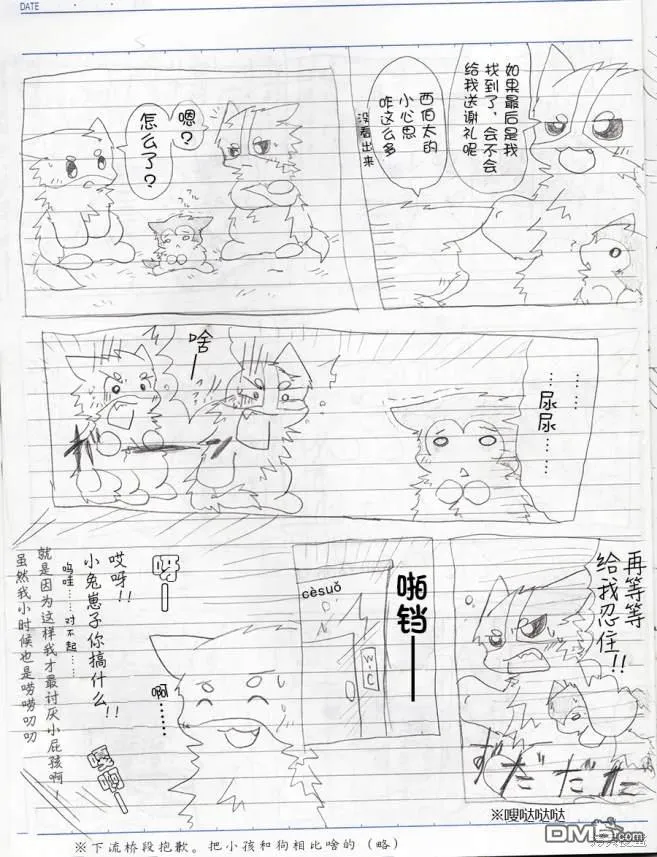 DATE
如果最后是我
找到了，会不会
给我送谢礼呢
西伯太的
小心思
咋这么多
没看出来
嗯？
怎么了？
……
…尿尿……
啥—
ガーン
再等等
给我忍住!!
ずだだだ
※嗖哒哒哒
啪铛——
cèsuǒ
W·C
啊……
哎呀!!
小兔崽子你搞什么!!
呜哇……对不起……
就是因为这样我才最讨厌小屁孩啊!
虽然我小时候也是唠唠叨叨
※下流桥段抱歉。把小孩和狗相比啥的（略）
DM5.com